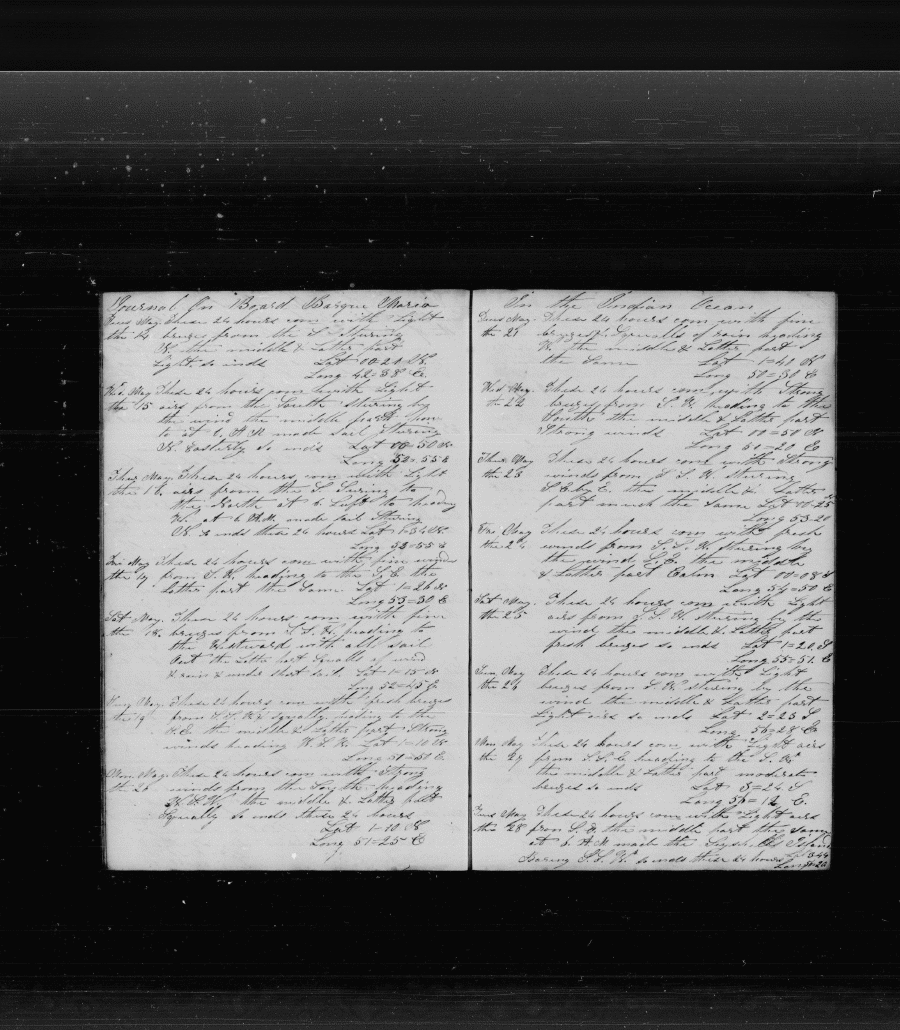 Journal On Board Barque Maria
Tues May These 24 hours com with Light
the 14 breze from the S Stearing
N. the middle & Latter part
Light so ends Lat 00=20 N.
Long 42=38 E.
Wed May These 24 hours com with Light
the 15 airs from the South stearing by
the wind the middle part
to at 6 A M made sail Stearing
N. Easterly so ends Lat 00=50 N
Long 52=55 E
Thur May These 24 hours com with Light
the 16 airs from the S to
the North at 6 Luft to heading
W. at 6 A.M. made sail Stearing
N. so ends these 24 hours Lat 1=34 N.
Long 53=55 E
Fri May These 24 hours com with fine winds
the 17 from S.W. heading to the S.E the
Latter part the Same Lat 1=26 N
Long 53=30 E
Sat May. These 24 hours com with fine
the 18. brezes from S.S.W. heading to
the Westward with all sail
the Latter part Squalls of wind
& rain & under short sail. Lat 1=15 N
Long 52=45 E
Sun May These 24 hours com with fresh brezes
the 19 from S.S.W. Squally heading to the
the middle & Latter part Strong
winds heading W.S.W. Lat 1=10 N
Long 51=51 E.
Mon. May. These 24 hours com with Strong
the 20 winds from the South heading
W.S.W. the middle & Latter part
Squally so ends these 24 hours
Lat 1=10 N
Long 51=25 E
In the Indian Ocean
Tues May These 24 hours com with fine
the 21 brezes & Squalls of rain heading
W. the middle & Latter part
the Same Lat 1=40 N
Long 50=30 E
Wed May. These 24 hours com with Strong
the 22 breze from S.W. heading to the
South the middle & Latter part
Strong winds Lat 00=50 N
Long 51=20 E
Thur May These 24 hours com with Strong
the 23 winds from S.S.W. stearing
S.E by E. the middle & Latter
part much the Same Lat 00=25
Long 53=20
Fri May These 24 hours com with fresh
the 24 winds from S.S.W. stearing by
the wind S.E. the middle
& Latter part Calm Lat 00=08 S
Long 54=50 E
Sat May. These 24 hours com with Light
the 25 airs from S.S.W. stearing by the
wind the middle & Latter part
fresh brezes so ends Lat 1=20 S
Long 55=51. E
Sun May These 24 hours com with Light
the 26 brezes from S.W. stearing by the
wind the middle & Latter part
Light airs so ends Lat 2=23 S
Long 56=28 E.
Mon May These 24 hours com with Light airs
the 27 from S.S.E heading to the S.W
the middle & Latter part moderate
brezes so ends Lat 3=24 S
Long 56=12 E.
Tues May These 24 hours com with Light airs
the 28 from S.E. the middle part the Same
at 6 A M made the Seychelles Island
Baring S.S.W. so ends these 24 hours Lat 3=44